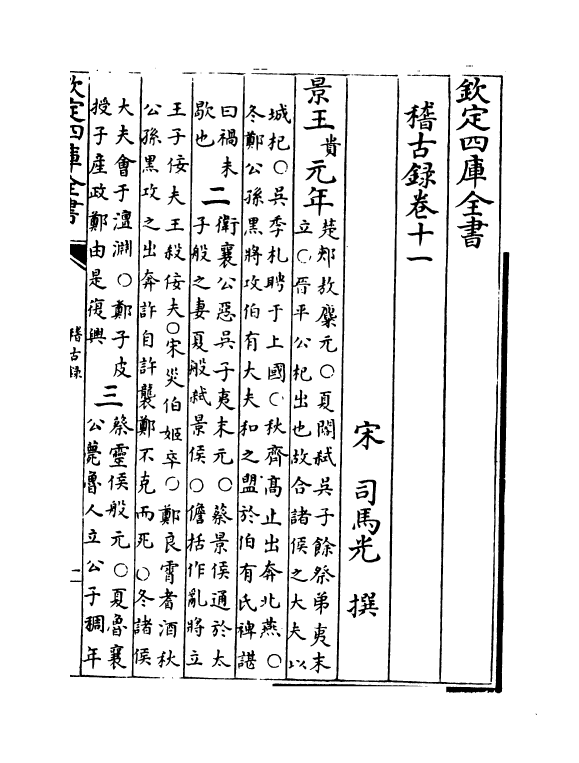 欽定四庫全書
稽古録卷十一
宋 司馬光 撰
景王貴元年
楚郟敖麇元〇夏閽弑吳子餘祭弟夷末
立〇晉平公杞出也故合諸侯之大夫以
城杞〇吳季札聘于上國〇秋齊高止出奔北燕〇
冬鄭公孫黑將攻伯有大夫和之盟於伯有氏裨諶
曰禍未
歇也
二
衛襄公惡吳子夷末元〇蔡景侯通於太
子般之妻夏般弑景侯〇儋括作亂將立
王子佞夫王殺佞夫〇宋災伯姬卒〇鄭良霄耆酒秋
公孫黑攻之出奔許自許襲鄭不克而死〇冬諸侯
大夫會于澶淵〇鄭子皮
授子產政鄭由是復興
三
蔡靈侯般元〇夏魯襄
公薨魯人立公子稠年
欽定四庫全書
稽古録